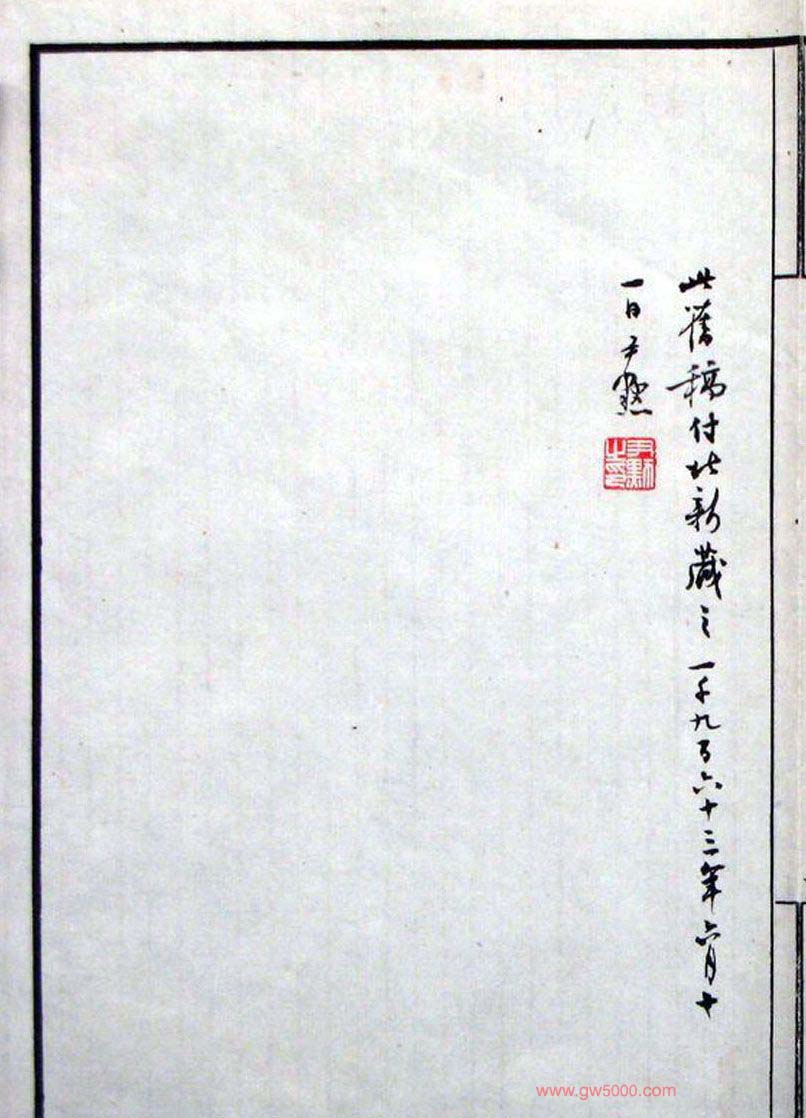 此舊稿付北新藏之一千九百六十三年六月十
一日尹默
www.gw5000.com